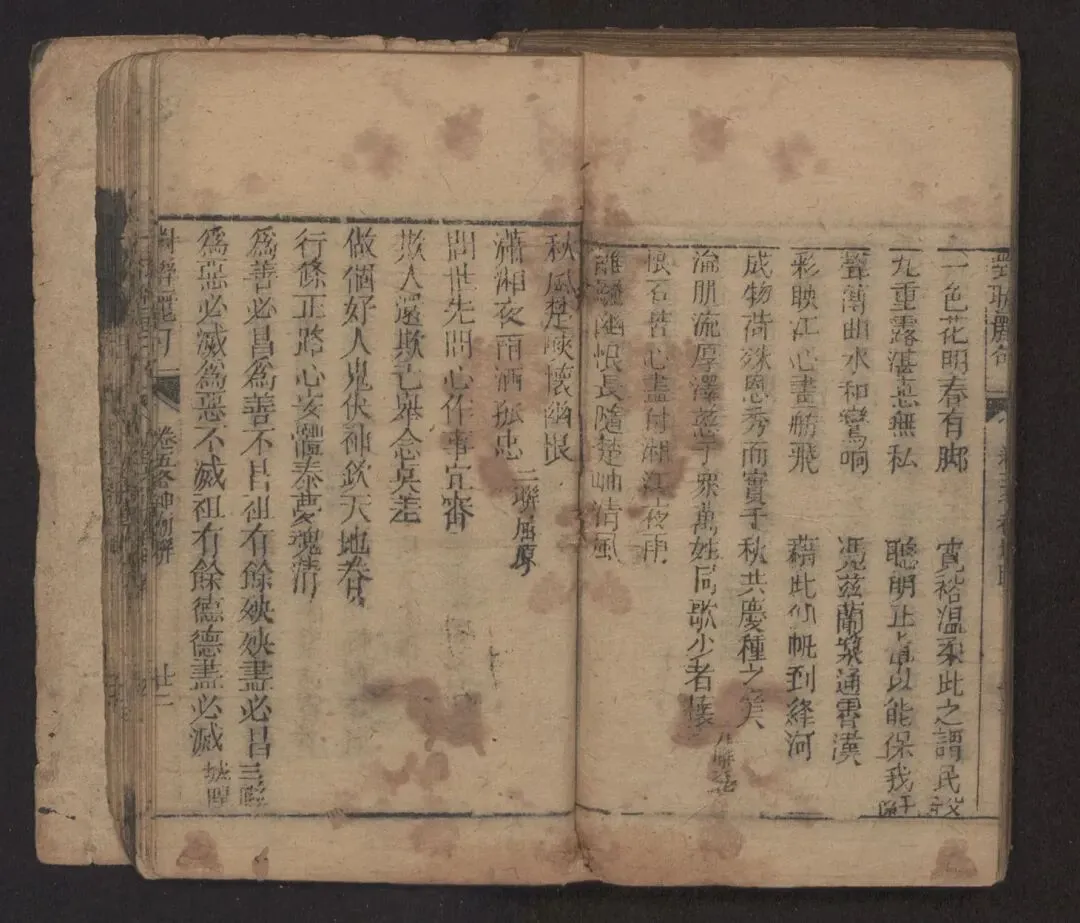 對聯麗句
一色花明春有脚　寬裕溫柔此之謂民父
九重露湛惪無私　聰明正直以能保我
聲薄曲水和鸞响　馮兹蘭槳通霄漢
彩映江心畫鷁飛　藉此仙帆到絳河
成物荷殊恩秀而實于秋共慶種之美
淪肌流厚澤慈于眾萬姓同歌少者懷
恨石昔心盡付湘江夜雨
離騷幽恨長隨楚岫清風
秋風楚峽懷幽恨
瀟湘夜雨洒孤忠　二聯屈原
問世先問心作事宜審
欺人還欺己舉念莫差
做個好人鬼伏神欽天地春
行條正路心安體泰夢魂清
為善必昌為善不昌祖有餘殃殃盡必昌　三聯
為惡必滅為惡不滅祖有餘德德盡必滅　城隍
對聯麗句　卷五　各神　聯　廿二